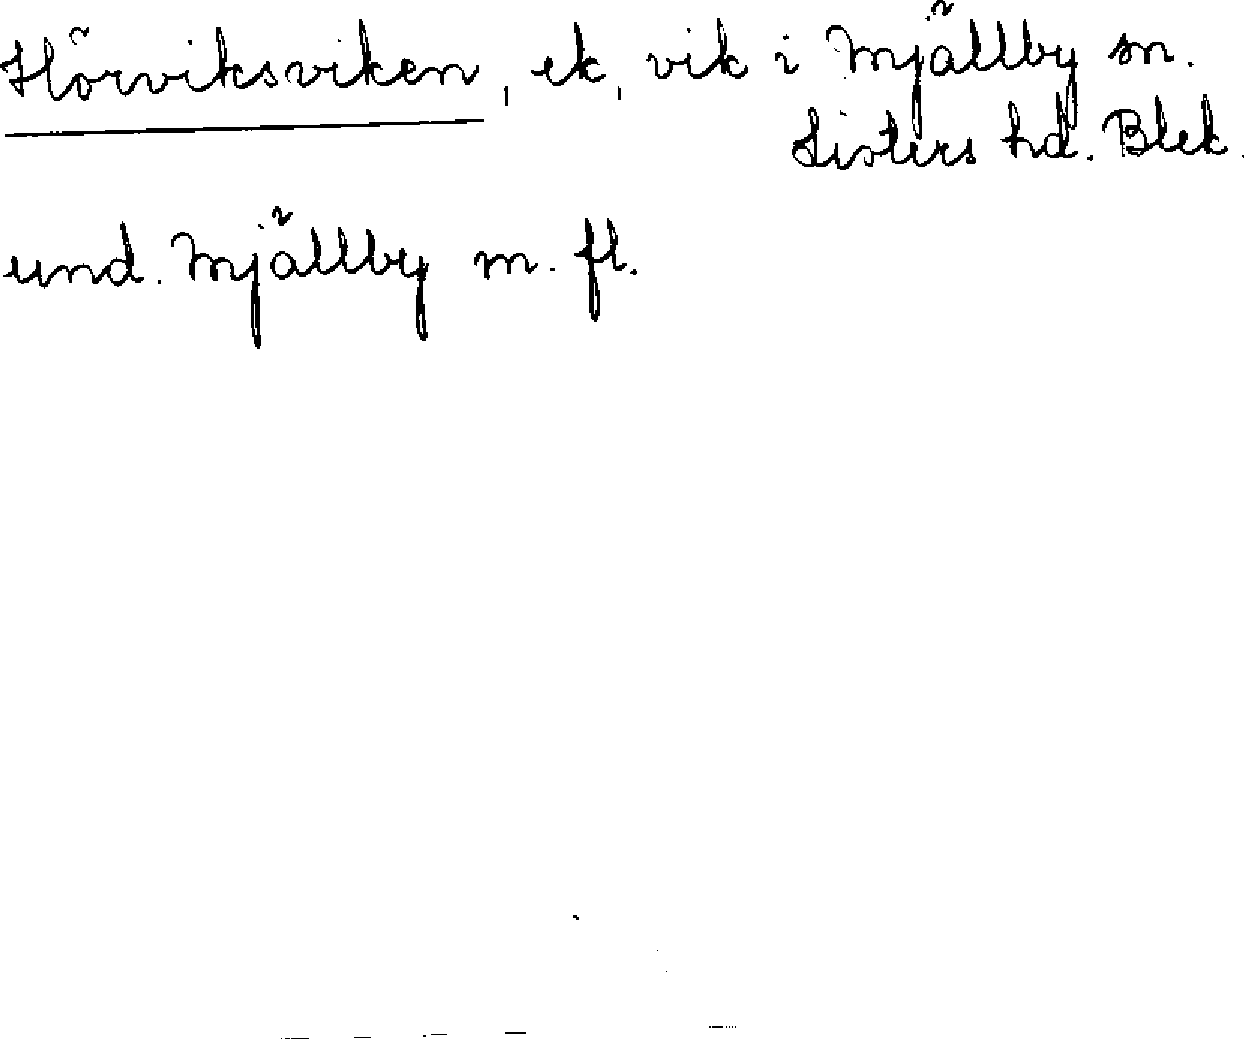 Hörviksviken, ek, vik i Mjällby sn.
Listers hd. Blek.
und. Mjällby m. fl.